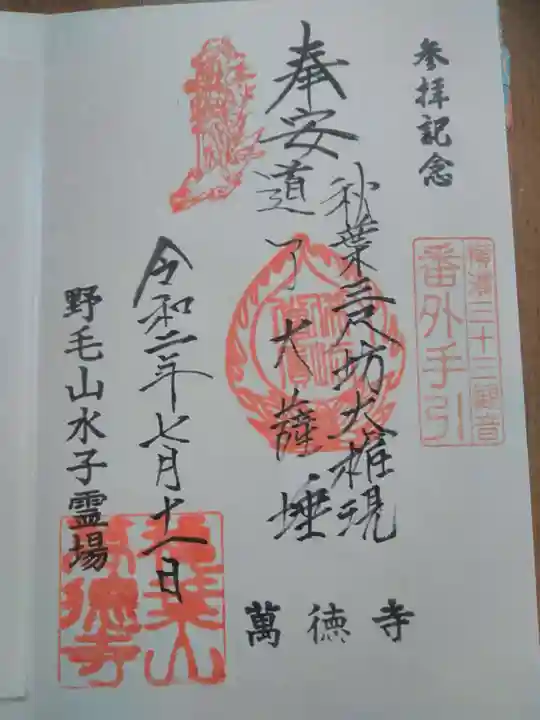 参拝記念
横濱三十三観音
番外手引
奉安
秋葉三尺坊大権現
道了大薩埵
令和二年七月十一日
野毛山水子霊場
萬徳寺
萬徳寺